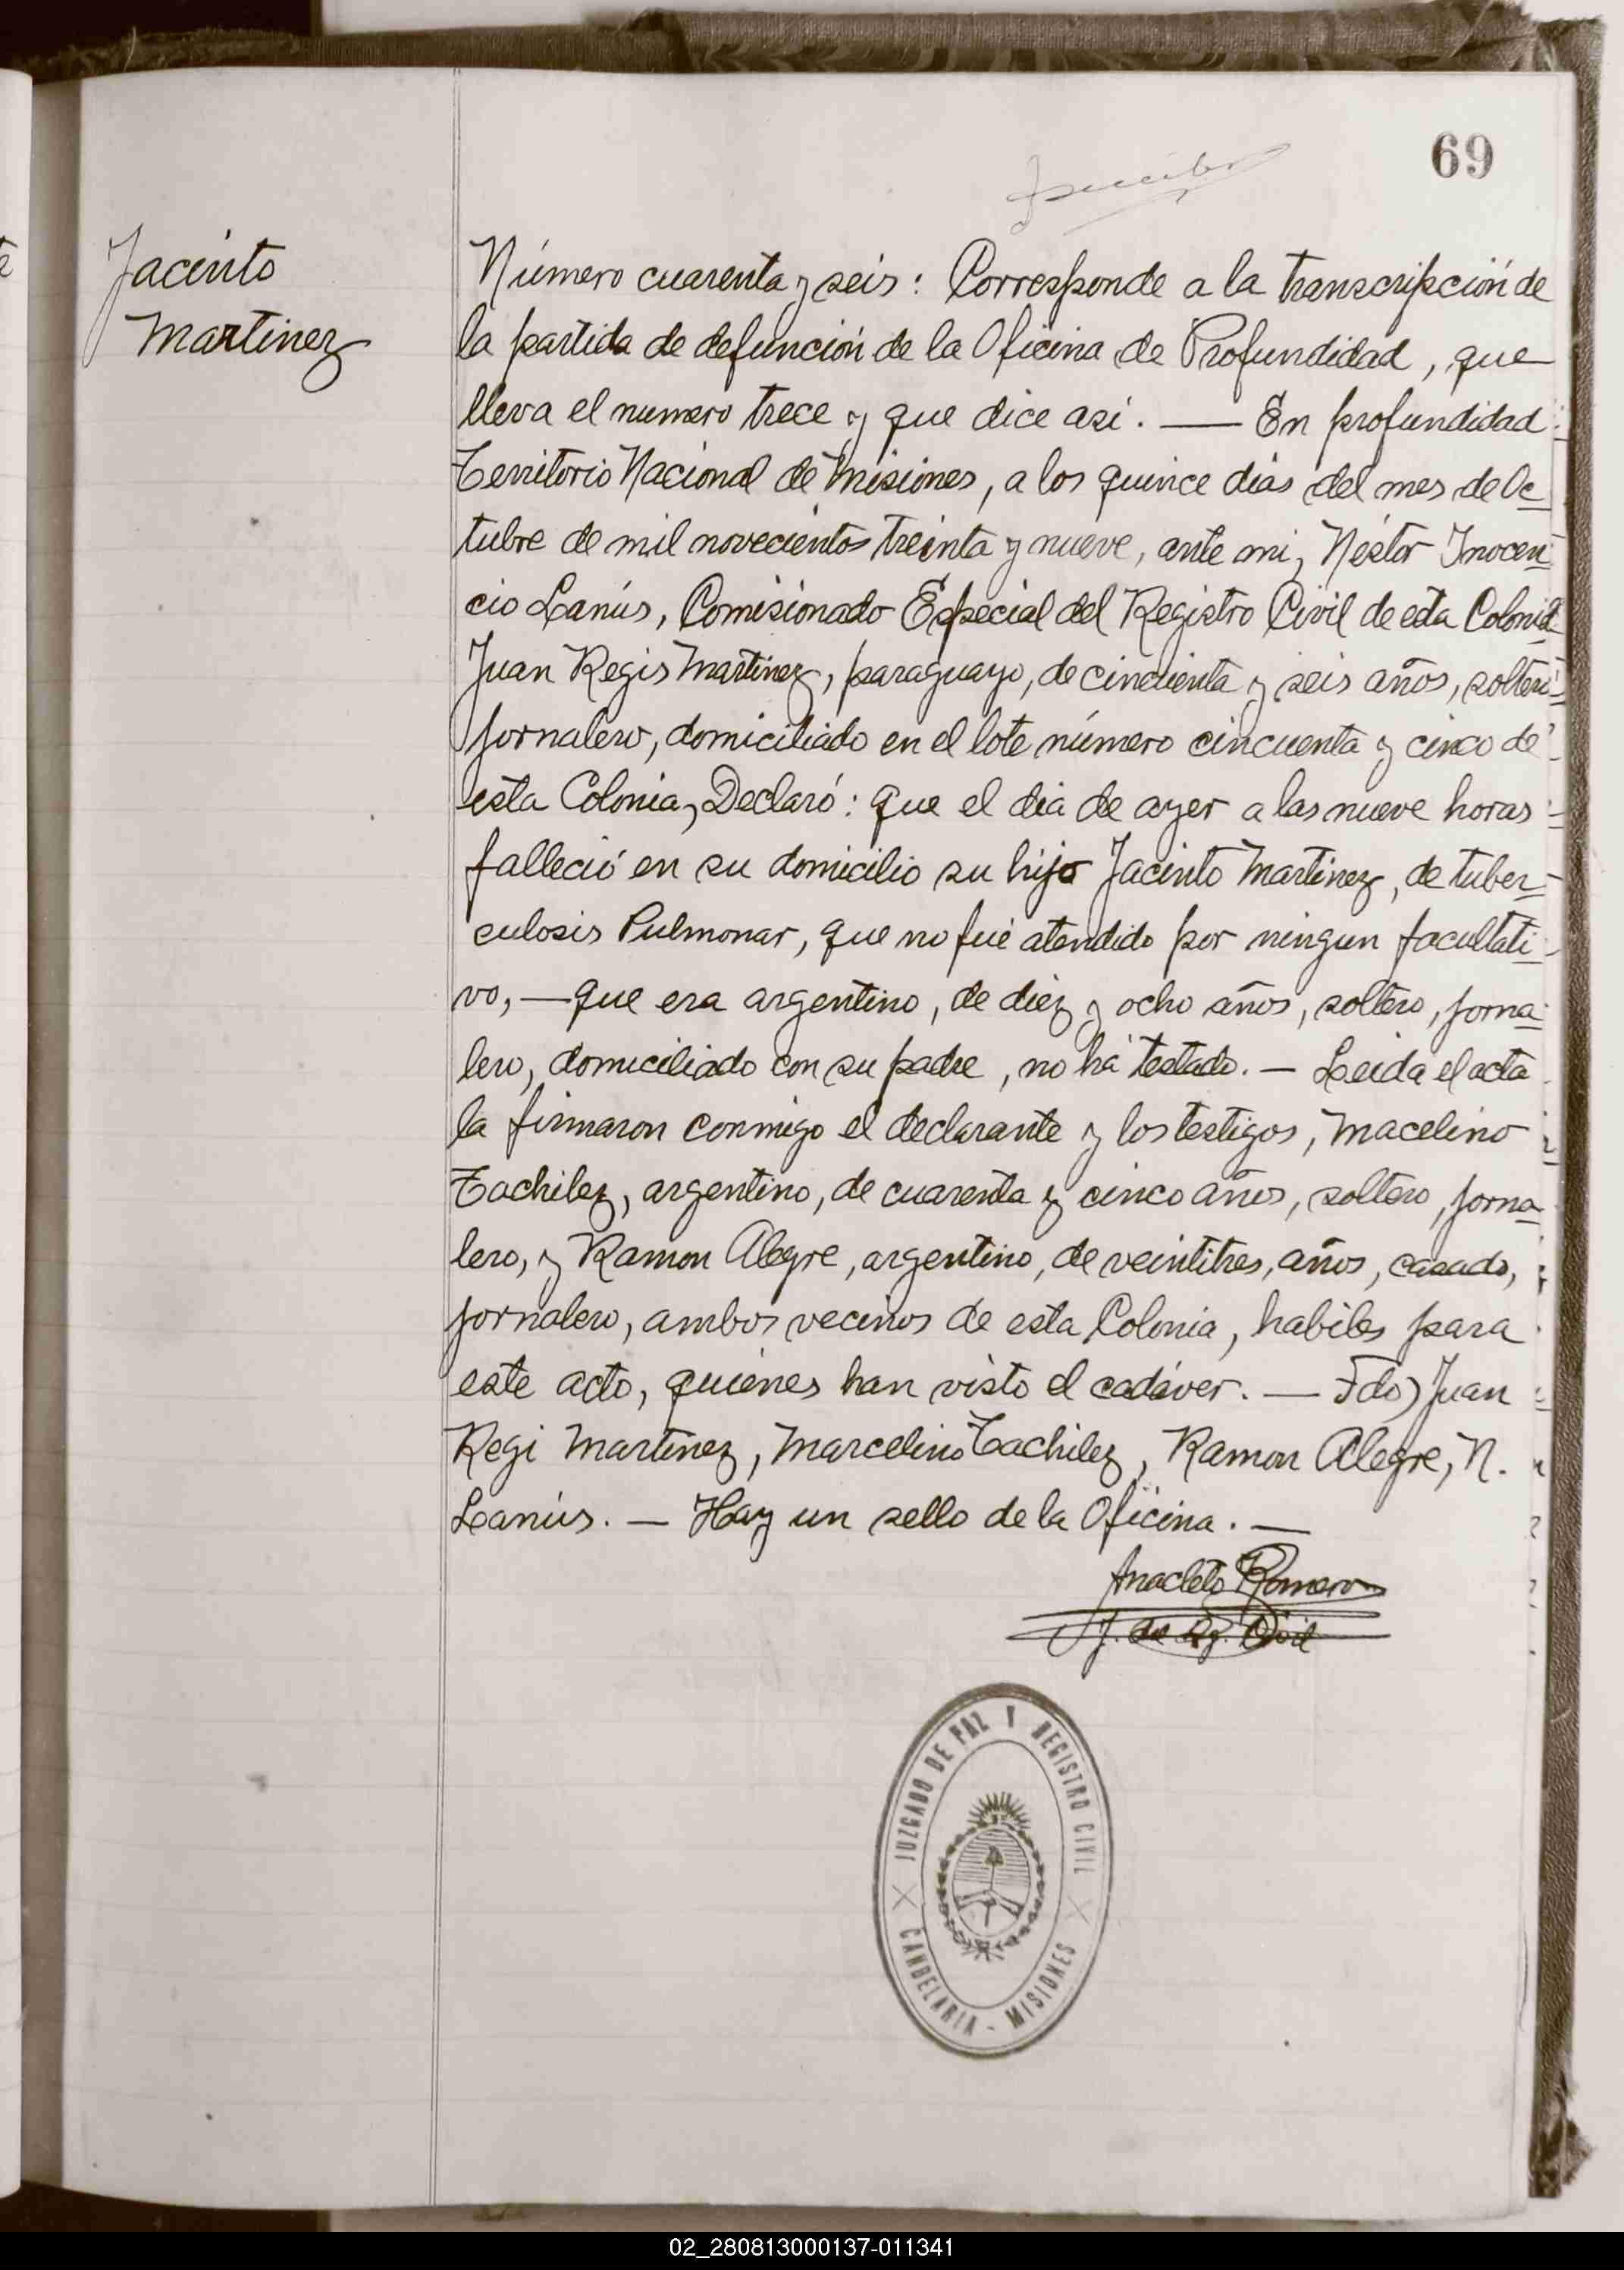 69
Jacinto
Martinez
Número cuarenta y seis: Corresponde a la transcripción de
la partida de defunción de la Oficina de Profundidad, que
lleva el numero trece y que dice asi. — En profundidad
Territorio Nacional de Misiones, a los quince dias del mes de Oc
tubre de mil novecientos treinta y nueve, ante mi, Néstor Inocen
cio Lanús, Comisionado Especial del Registro Civil de esta Colonia
Juan Regis Martinez, paraguayo, de cincuenta y seis años, soltero
jornalero, domiciliado en el lote número cincuenta y cinco de
esta Colonia, Declaró: que el dia de ayer a las nueve horas
falleció en su domicilio su hijo Jacinto Martinez, de tuber
culosis Pulmonar, que no fué atendido por ningun facultati
vo, — que era argentino, de diez y ocho años, soltero, jorna
lero, domiciliado con su padre, no há testado. — Leida el acta
la firmaron conmigo el declarante y los testigos, Macelino
Tachilez, argentino, de cuarenta y cinco años, soltero, jorna
lero, y Ramon Alegre, argentino, de veintitres, años, casado,
jornalero, ambos vecinos de esta Colonia, habiles para
este acto, quienes han visto el cadáver. — Fdo) Juan
Regi Martinez, Marcelino Tachilez, Ramon Alegre, N.
Lanús. — Hay un sello de la Oficina. —
Anacleto Romero
J. de Rg. Civil
JUZGADO DE PAZ Y REGISTRO CIVIL
CANDELARIA - MISIONES
02_280813000137-011341